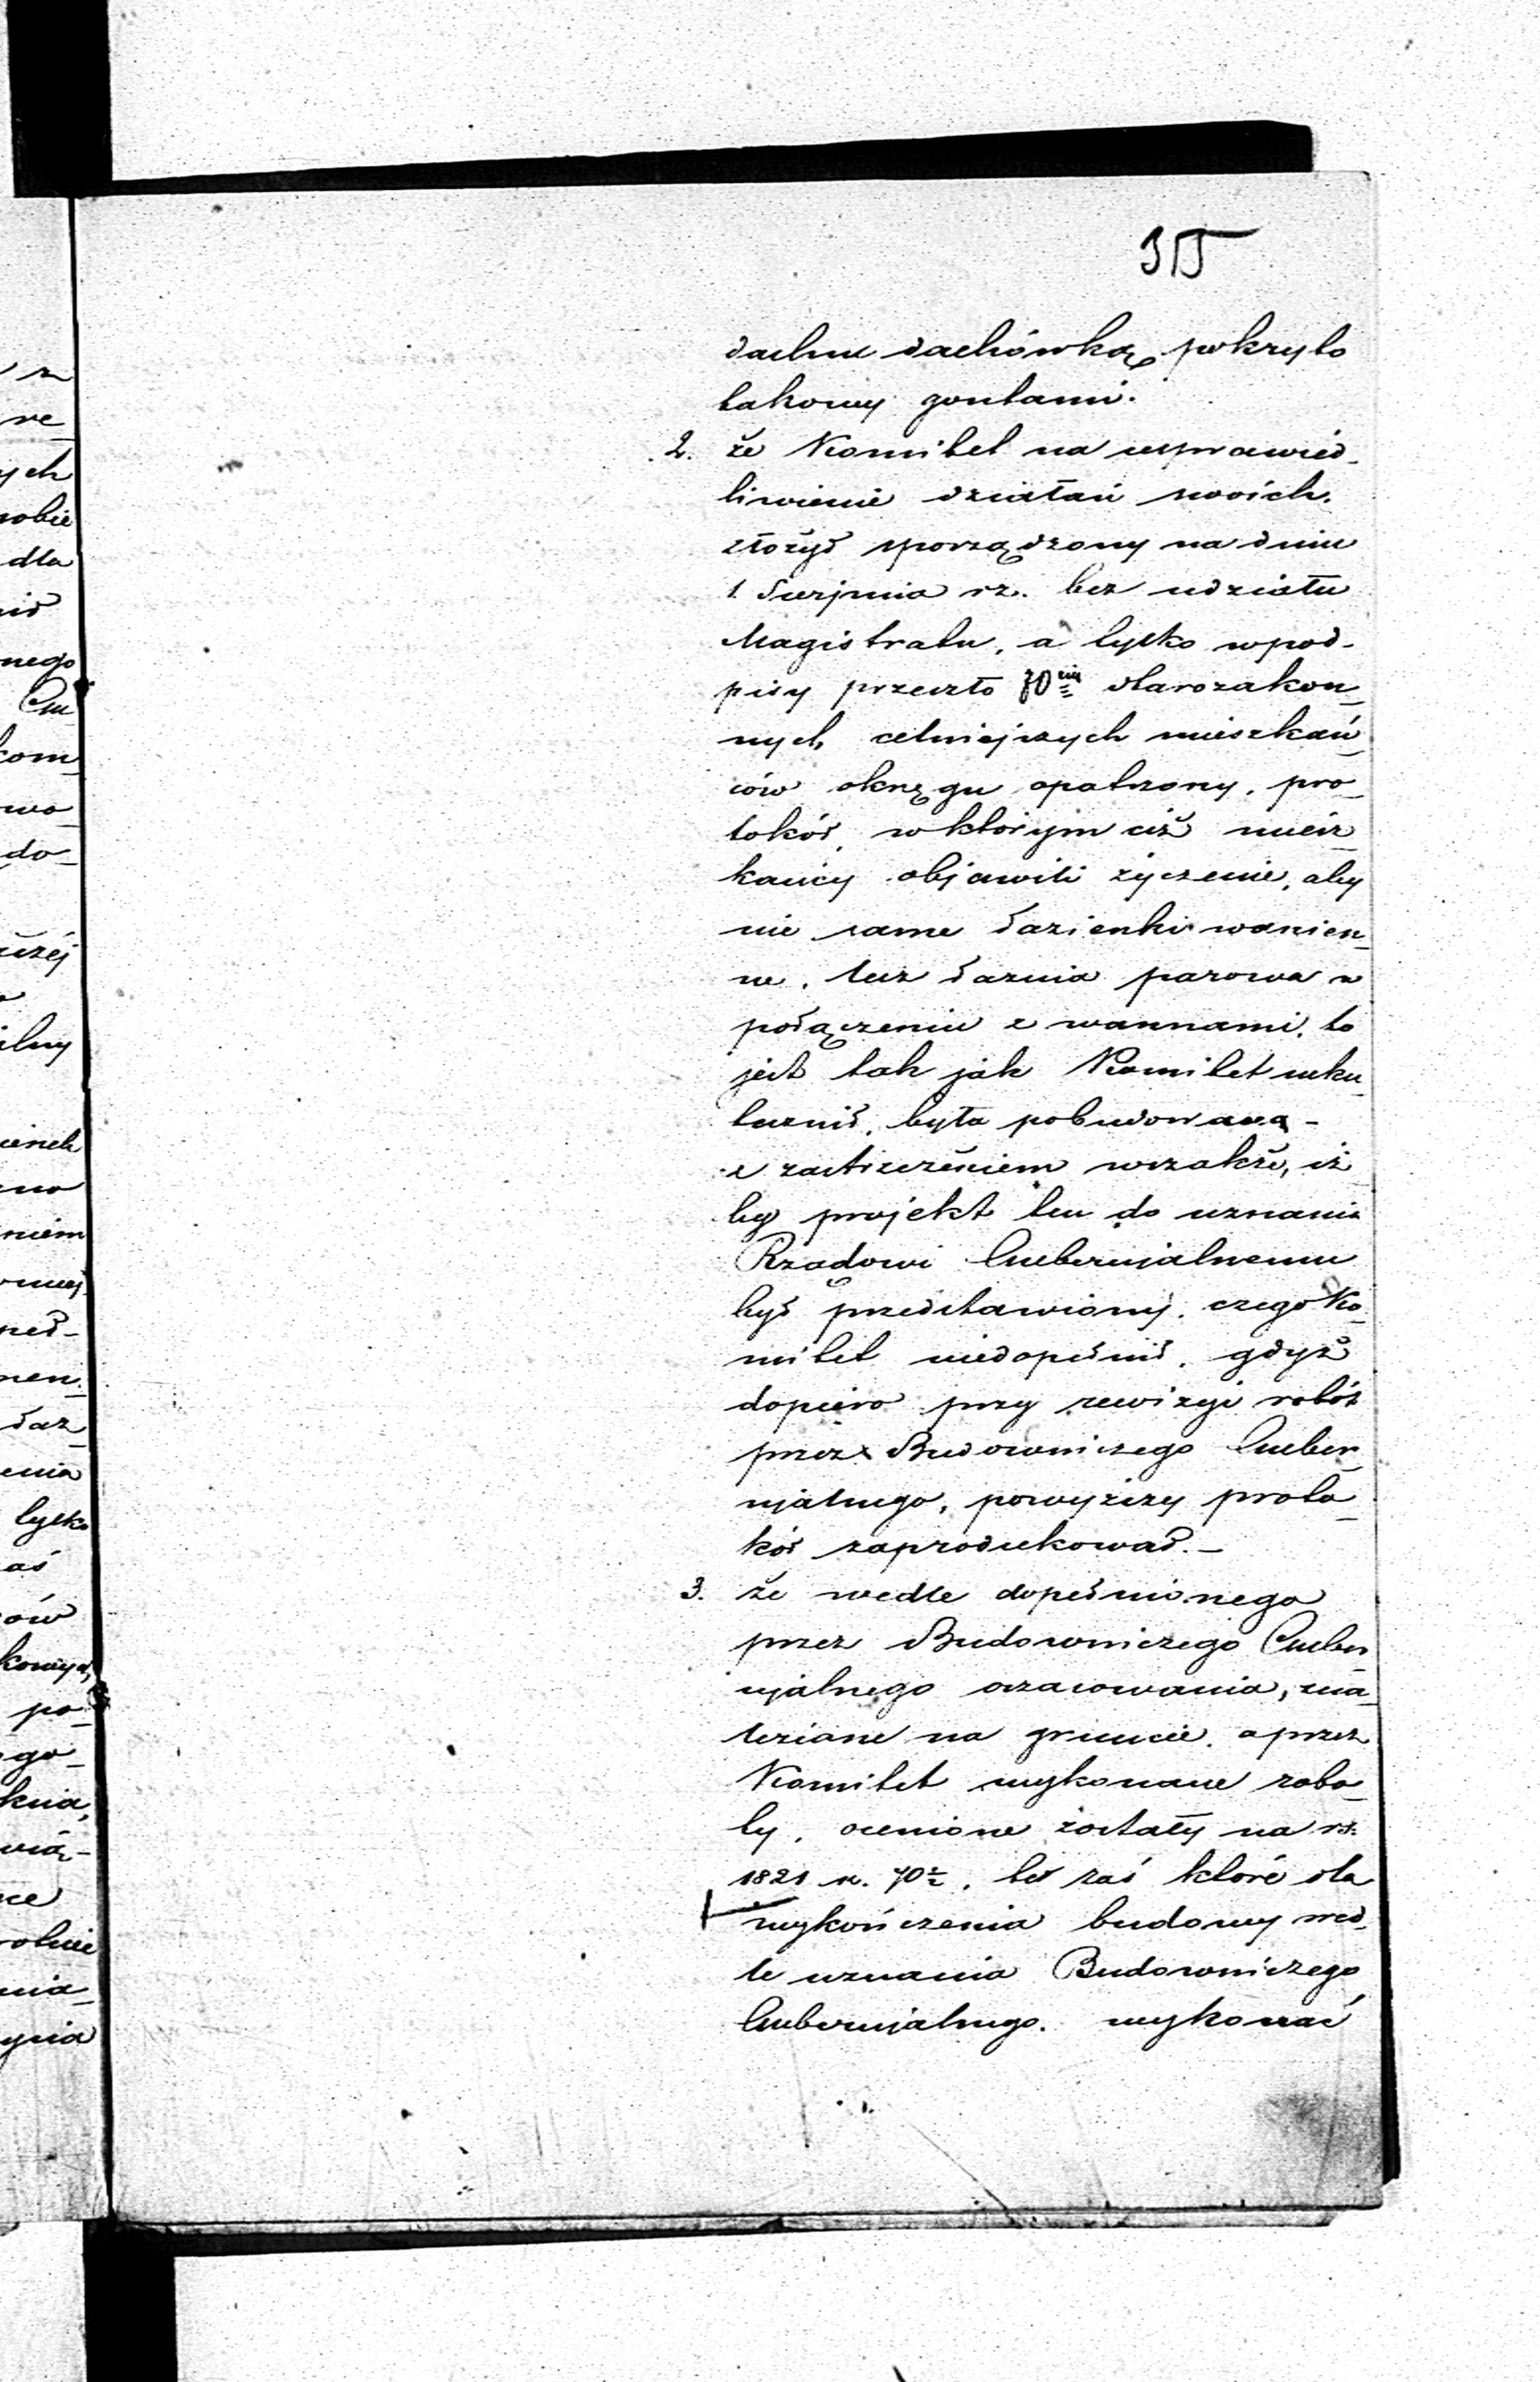 315
dachu dachówką, pokryto
takowy gontami.
2. że Komitet na usprawied-
liwienie działań swoich.
złożył sporządzony na dniu
1. Sierpnia rz. bez udziału
Magistratu, a tylko w pod-
pisy przeszło 70ciu starozakon-
nych celniejszych mieszkań-
ców okręgu opatrzony, pro-
tokół, w którym ciż miesz-
kańcy objawili życzenie, aby
nie same łazienki wanien-
ne, lecz łaznia parowa w
połączeniu z wannami, to
jest tak jak Komitet usku-
tecznił, była pobudowaną -
z zastrzeżeniem wszakże, iż
by projekt ten do uznania
Rządowi Gubernjalnemu
był przedstawiony, czego Ko-
mitet niedopełnił, gdyż
dopiero przy rewizyi robót
przez Budowniczego Guber-
njalnego, powyższy proto-
kół zaprodukował. -
3. że wedle dopełnionego
przez Budowniczego Guber-
njalnego oszacowania, ma-
teriane na gruncie, a przez
Komitet wykonane robo-
ty, ocenione zostały na rs.
1821 k. 70½, te zaś które dla
wykończenia budowy wed-
le uznania Budowniczego
Gubernjalnego, wykonać